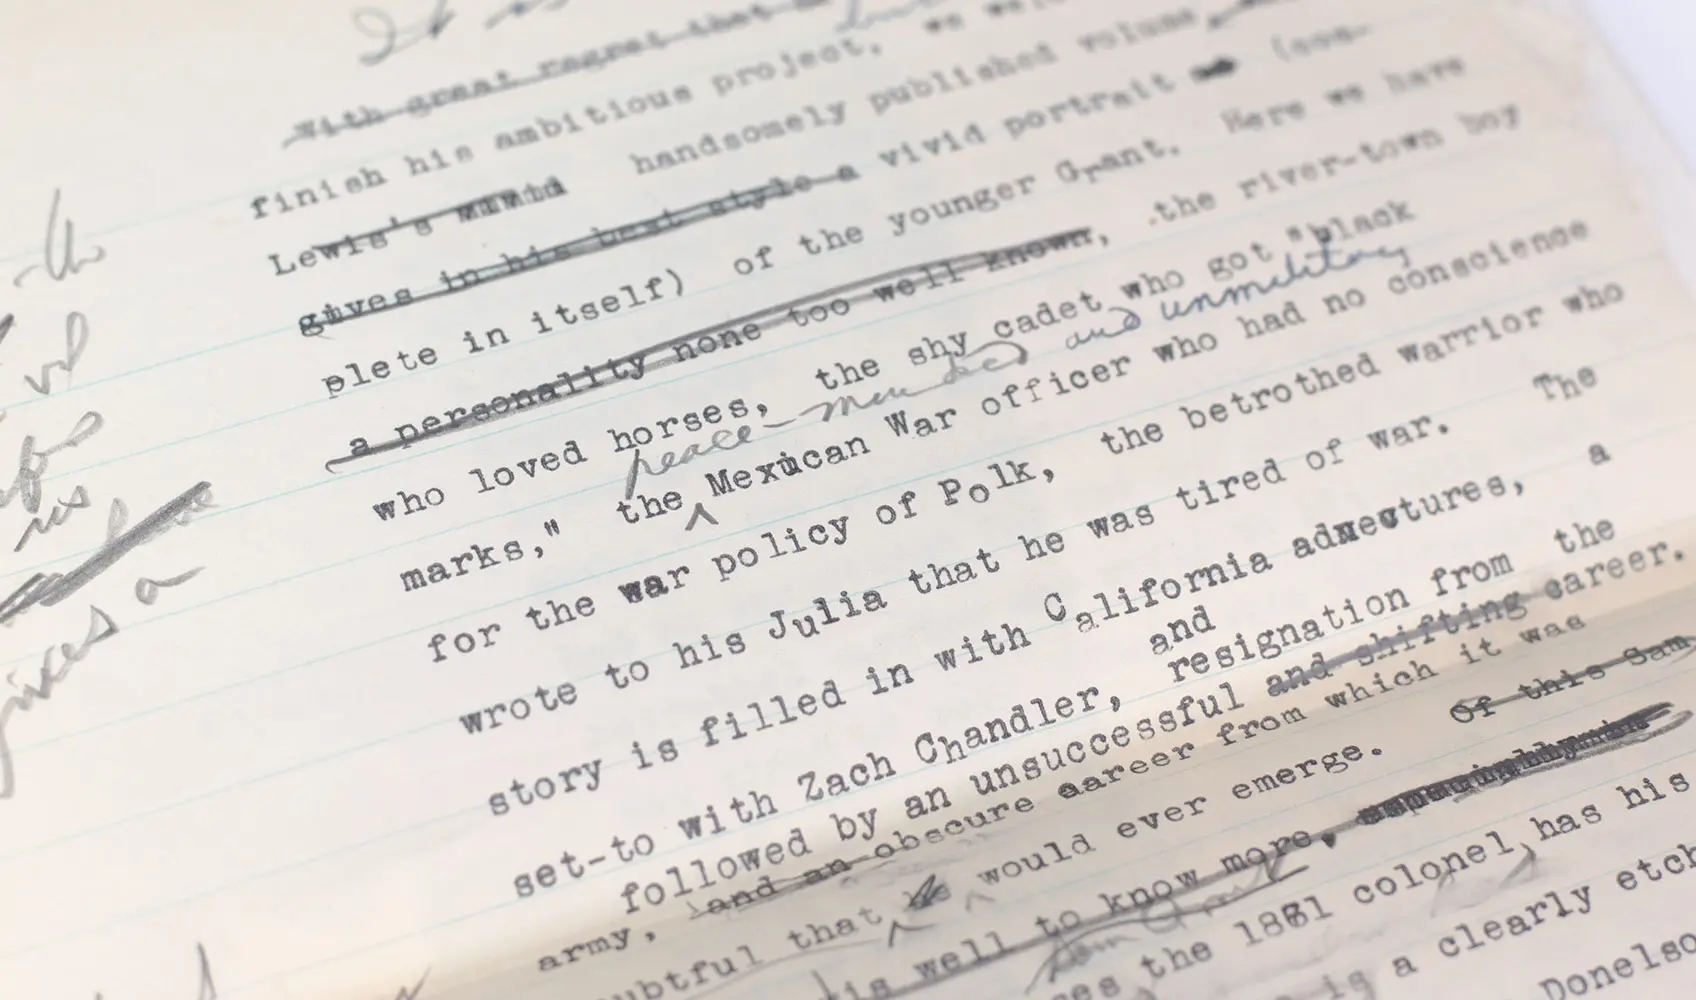 With great regret that
finish his ambitious project, we
Lewis's handsomely published volume
gives in his best style a vivid portrait (com-
plete in itself) of the younger Grant. Here we have
a personality none too well known, .the river-town boy
who loved horses, the shy cadet who got "black
peace-minded and unmilitary
marks," the ^ Mexican War officer who had no conscience
for the war policy of Polk, the betrothed warrior who
wrote to his Julia that he was tired of war. The
story is filled in with California adventures, a
and
set-to with Zach Chandler, resignation from the
followed by an unsuccessful and shifting career.
army, and an obscure career from which it was
that would ever emerge. Of this Sam
is well to know more,
the 1861 colonel, has his
is a clearly etch
Donelso
gives a